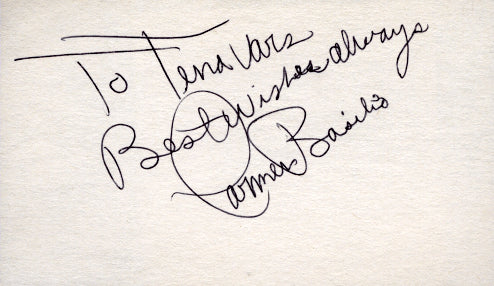 To Tena Vars
Best Wishes always
Carmen Basilio